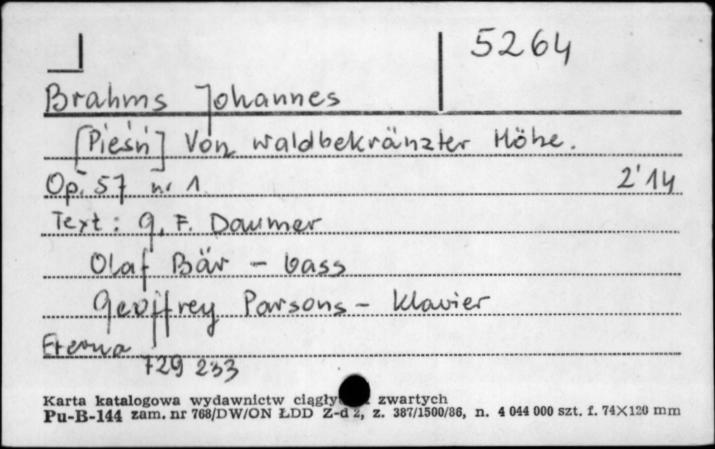 5264
Brahms Johannes
[Pieśń] Von waldbekränzter Höhe.
Op. 57 nr 1. 2'14
Text: G. F. Daumer
Olaf Bär - bass
Geoffrey Parsons - Klavier
Eterna
729 233
Karta katalogowa wydawnictw ciągły zwartych
Pu-B-144 zam. nr 768/DW/ON ŁDD Z-d 2, z. 387/1500/86, n. 4 044 000 szt. f. 74×120 mm